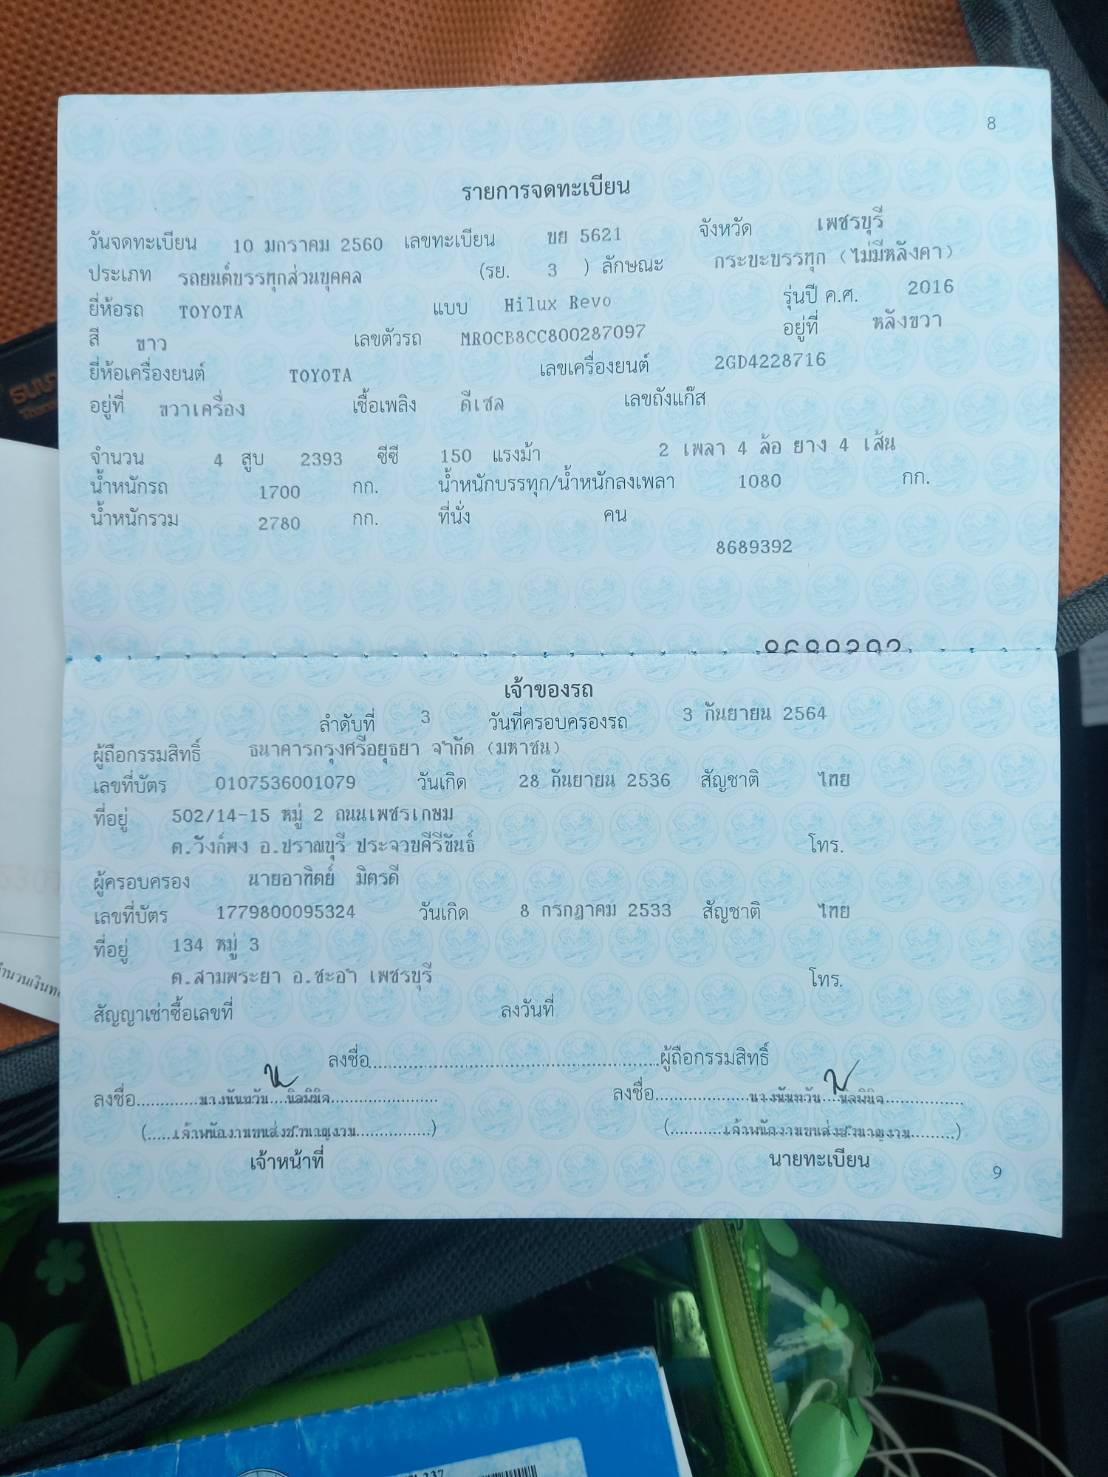 8
รายการจดทะเบียน
วันจดทะเบียน 10 มกราคม 2560 เลขทะเบียน ขย 5621 จังหวัด เพชรบุรี
ประเภท รถยนต์บรรทุกส่วนบุคคล (รย. 3 ) ลักษณะ กระบะบรรทุก (ไม่มีหลังคา)
ยี่ห้อรถ TOYOTA แบบ Hilux Revo รุ่นปี ค.ศ. 2016
สี ขาว เลขตัวรถ MROCB8CC800287097 อยู่ที่ หลังขวา
ยี่ห้อเครื่องยนต์ TOYOTA เลขเครื่องยนต์ 2GD4228716
อยู่ที่ ขวาเครื่อง เชื้อเพลิง ดีเซล เลขถังแก๊ส
จำนวน 4 สูบ 2393 ซีซี 150 แรงม้า 2 เพลา 4 ล้อ ยาง 4 เส้น
น้ำหนักรถ 1700 กก. น้ำหนักบรรทุก/น้ำหนักลงเพลา 1080 กก.
น้ำหนักรวม 2780 กก. ที่นั่ง คน
8689392
เจ้าของรถ
ลำดับที่ 3 วันที่ครอบครองรถ 3 กันยายน 2564
ผู้ถือกรรมสิทธิ์ ธนาคารกรุงศรีอยุธยา จำกัด (มหาชน)
เลขที่บัตร 0107536001079 วันเกิด 28 กันยายน 2536 สัญชาติ ไทย
ที่อยู่ 502/14-15 หมู่ 2 ถนนเพชรเกษม
ต.วังก์พง อ.ปราณบุรี ประจวบคีรีขันธ์ โทร.
ผู้ครอบครอง นายอาทิตย์ มิตรดี
เลขที่บัตร 1779800095324 วันเกิด 8 กรกฎาคม 2533 สัญชาติ ไทย
ที่อยู่ 134 หมู่ 3
ต.สามพระยา อ.ชะอำ เพชรบุรี โทร.
สัญญาเช่าซื้อเลขที่ ลงวันที่
ลงชื่อ............................................................ผู้ถือกรรมสิทธิ์
ลงชื่อ............นางนันทวัน....นิลพินิจ.................... ลงชื่อ..................นางนันทวัน....นิลพินิจ...............
(......เจ้าพนักงานขนส่งชำนาญงาน..............) (..........เจ้าพนักงานขนส่งชำนาญงาน........)
เจ้าหน้าที่ นายทะเบียน
9